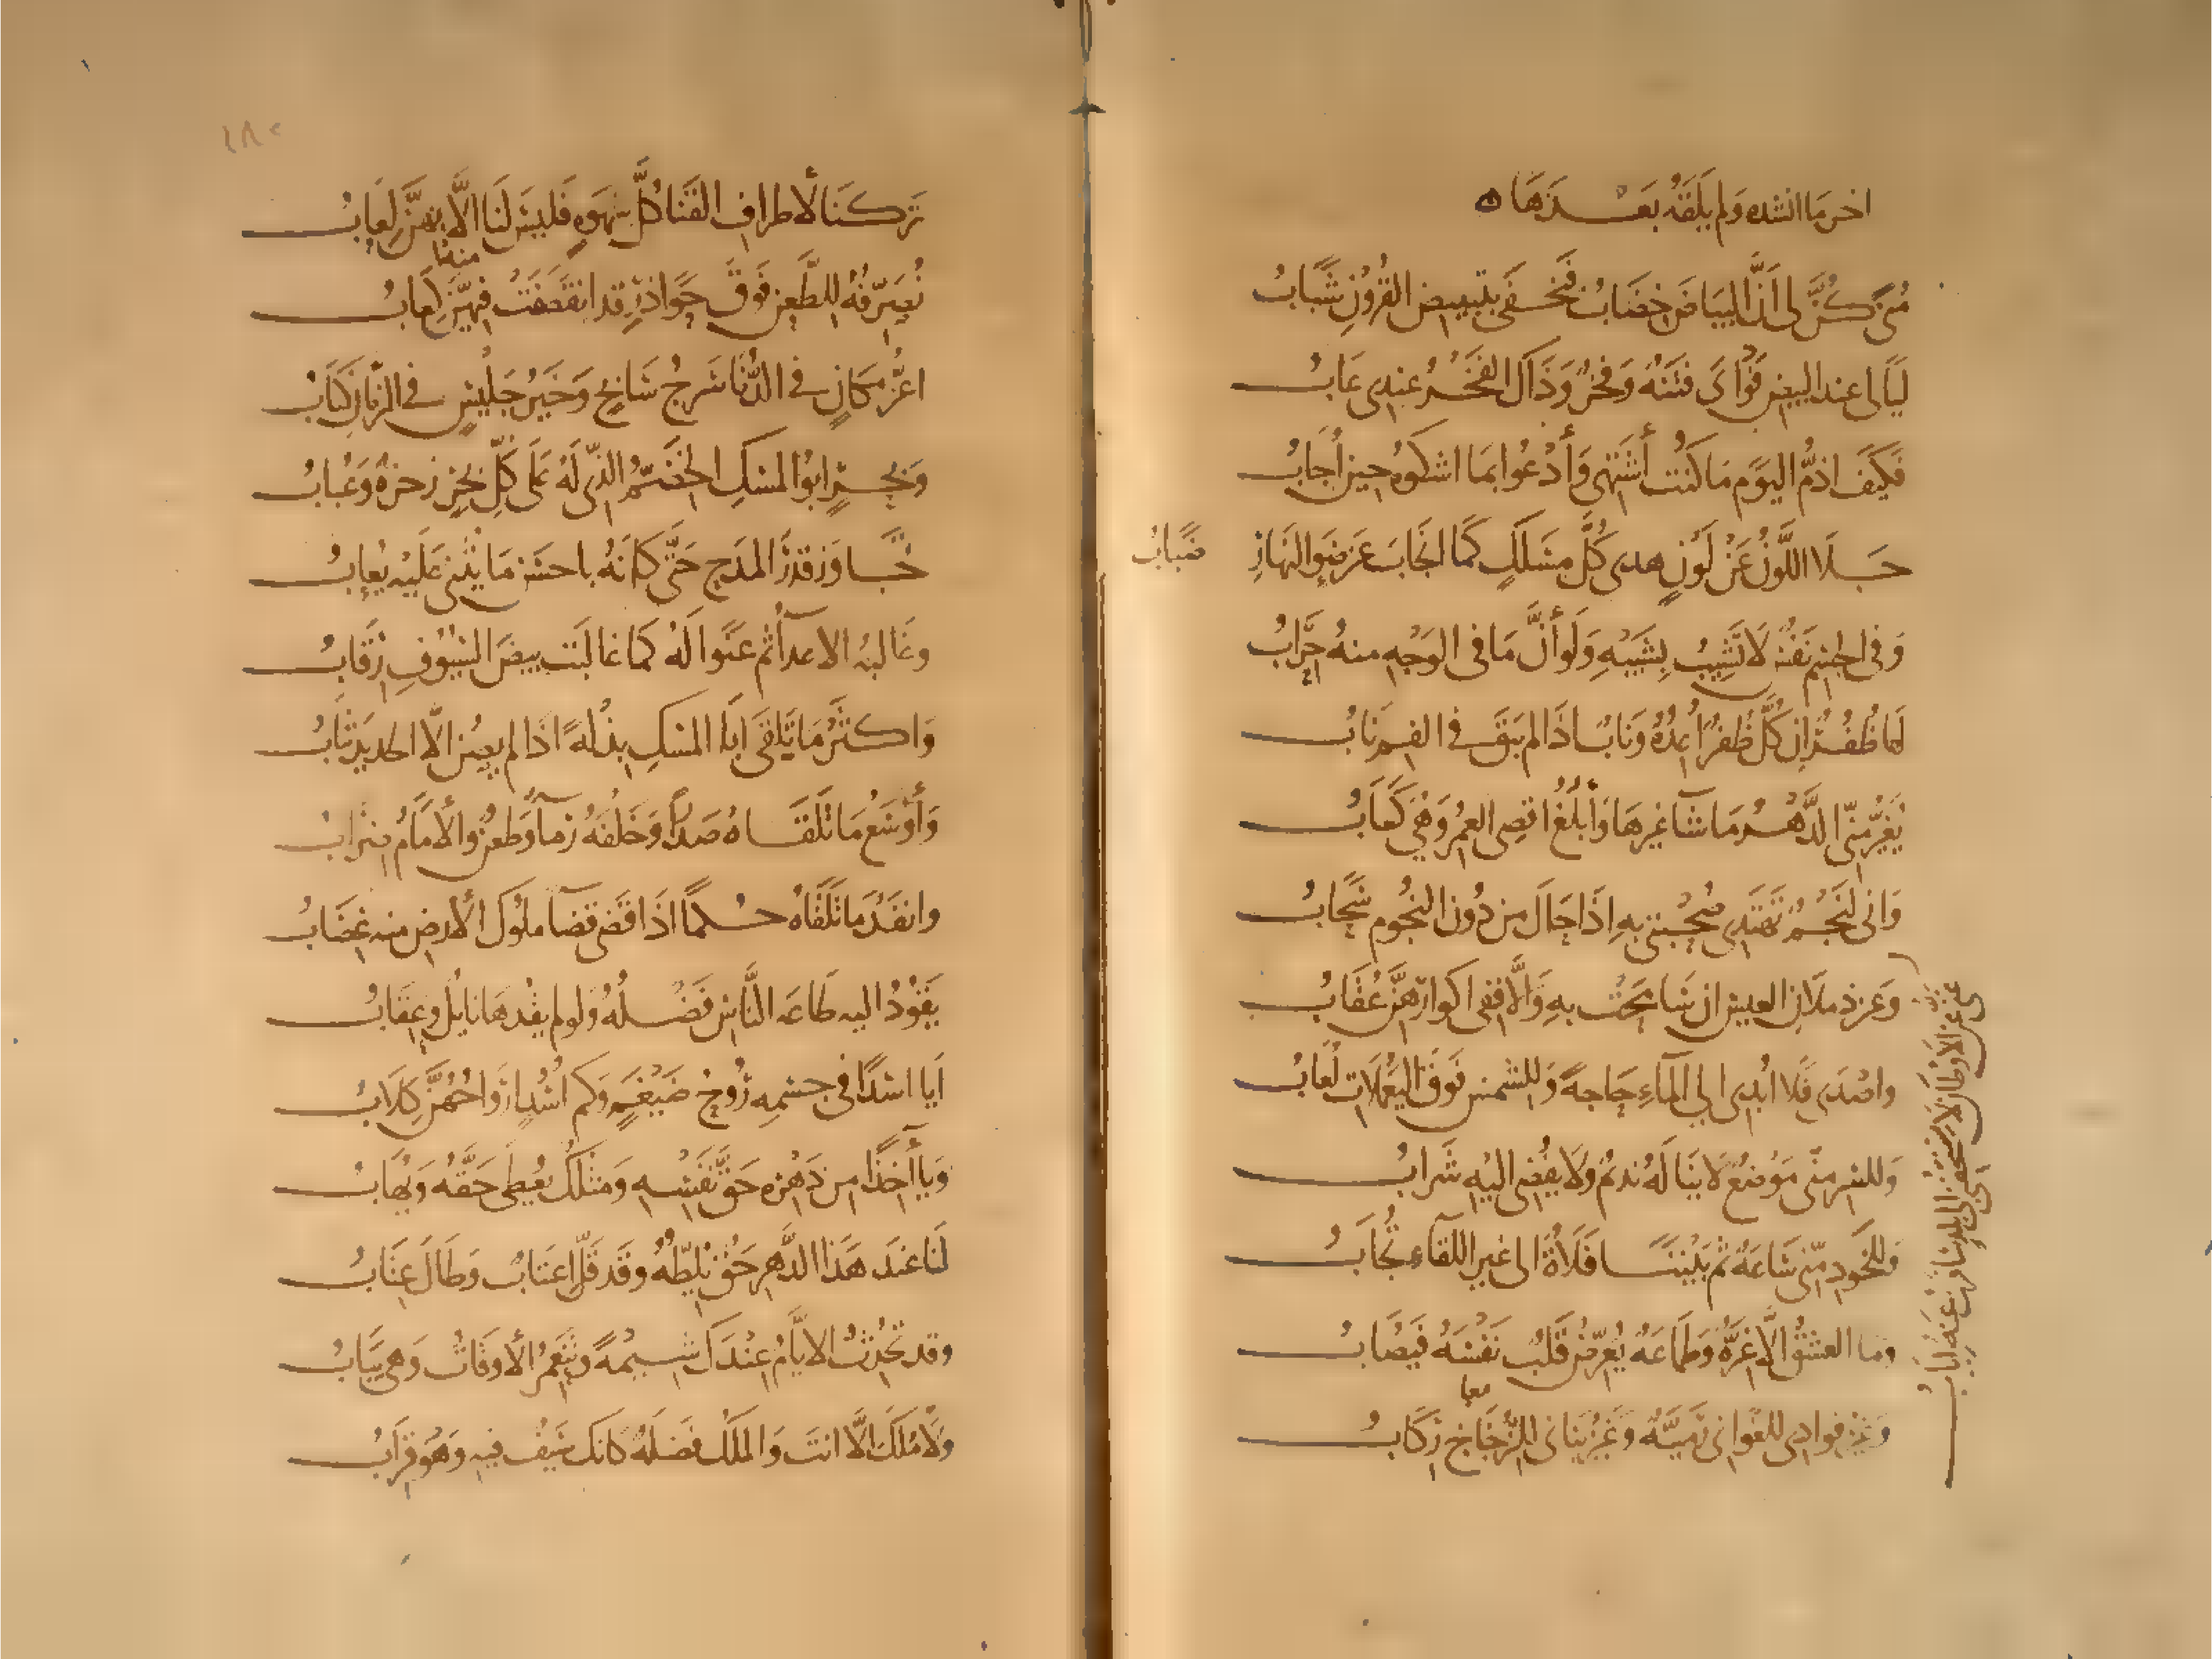 اخر ما انشده ولم يلقه بعدها ه
مُنًى كُنَّ لى أنَّ البياضَ خِضَابُ فَيَخفَى بتبييض القُرُونِ شَبَابُ
لَيَالى عند البيض فَوْدَاىَ فتنَهٌ وَفَخْرٌ وَذَاكَ الفَخْرُ عندى عَابُ
فَكَيْفَ اذمُّ اليَوْم مَا كنتُ أَشْتَهى وَأَدْعُوا بمَا اشكوهُ حين أُجَابُ
جَلَا اللَّوْنُ عَنْ لَوْنٍ هدى كُلَّ مَسْلَكٍ كَمَا انجَابَ عَن ضَوء النهَارِ ضَبَابُ
وَفى الجسْم نَفْسٌ لَا تَشِيبُ بِشَيْبِهِ وَلَو أَنَّ مَا فى الوَجْهِ منهُ حِرَابُ
لهَا ظُفُرٌ إِن كَلَّ ظُفْرٌ أُعِدُّهُ وَنَابٌ اذَا لم يَبْقَ فى الفم نَابُ
يُغَيِّرُ مِنّى الدَّهْرُ مَا شآءَ غيرهَا وَأَبْلُغُ اقصى العُمْرِ وَهْىَ كَعَابُ
وَانى لنَجْمٌ تَهْتَدِى صُحْبَتى بهِ اذَا حَالَ من دُون النجُوم سَحَابُ
غَنِىٌّ عَنِ الأَوْطَانِ لَا يَسْتَخفّنى الى بلدٍ سَافرتُ عَنهُ ايابُ
وَعَن ذملَانِ العيس ان سَامَحَتْ بهِ وَالَّا فَفى اكوارهنَّ عُقَابُ
واصْدَى فَلَا ابْدِى الى المآءِ حَاجةً وَللشمْس فَوْقَ اليَعْمَلَاتِ لُعَابُ
وَللسر منّى مَوْضعٌ لَا يَنَالَهُ نَديمٌ وَلَا يفُضى اليْهِ شَرابُ
وَللخَوْدِ مِنّى سَاعَةٌ ثم بَيْنَنَا فَلَاةٌ الى غير اللقآءِ تُجَابُ
وما العشقُ الَّا غِرَّةٌ وَطَمَاعَهٌ يُعَرِّضُ قَلْبٌ نَفْسَهُ فَيُصَابُ
وَغَيْرُ فوادى للغَوَانى رَمِيَّةٌ وَغَيْرُ بَنَانى للزُّجَاج رِكَابُ
معا
تَرَكنَا لأطراف القَنَا كُلَّ شَهوَهٍ فَليسَ لَنَا الَّا بهنَّ لِعَابُ
نُصَرِّفُهُ للطَّعن فَوْقَ حَوَاذِرٍ قد انقَصَفَتْ فيهنَّ منهُ كعابُ
اعَزُّ مَكَانٍ فى الدُّنَا سَرجُ سَابحٍ وَخَيرُ جَلْيسٍ فى الزمَانِ كتَابُ
وَبَحْرٌ ابُوا المسْكِ الخِضَمُّ الذى لَهُ عَلَى كُلّ بَحْرٍ زخرةٌ وَعُبابُ
تجَاوَزَ قَدْرَ المَدْح حَتَّى كأنهُ باحسَن مَا يثْنى عَلَيهِ يعابُ
وغَالبَهُ الاعدآءُ ثم عَنَوا لَهُ كَمَا غالَبَت بيضَ السُيُوفِ رِقَابُ
وَاكثرُ مَا تَلقَى ابَا المسْكِ بِذْلَهً اذَا لم يصُن الَّا الحديدَ ثيَابُ
وَأَوْسَعُ مَا تَلْقَاهُ صَدرًا وَخَلفَهُ رمآءٌ وَطعنٌ والأَمَامُ ضِرابُ
وانفَذُ مَا تَلْقَاهُ حُكْمًا اذَا قضى قضآءً ملُوكُ الأرض منه غِضَابُ
يَقُوْدُ اليه طَاعَةَ النَّاسِ فَضْلُهُ وَلو لم يقُدهَا نايْلٌ وعِقَابُ
أَيَا اسَدًا فى جسْمِهِ رُوحُ ضَيْغَمٍ وَكم أُسْدٍ ارْوَاحُهُنَّ كِلَابُ
وَيَا آخِذًا من دَهْرهِ حَقَّ نَفْسهِ وَمثلُكَ يُعْطَى حَقَّهُ وَيُهَابُ
لَنَا عندَ هَذا الدَّهرِ حَقٌّ يَلِطُّهُ وَقَد قَلَّ إعتَابٌ وَطَالَ عِتَابُ
وقد تُحْدثُ الايَّامُ عنْدَكَ شِيمَةً وَتَنْعَمِرُ الأوقَاتُ وَهى يَبَابُ
وَلَا مُلكَ الَّا انتَ وَالملْكُ فضْلَهٌ كانك سَيْفٌ فيهِ وَهْوَ قِرَابُ